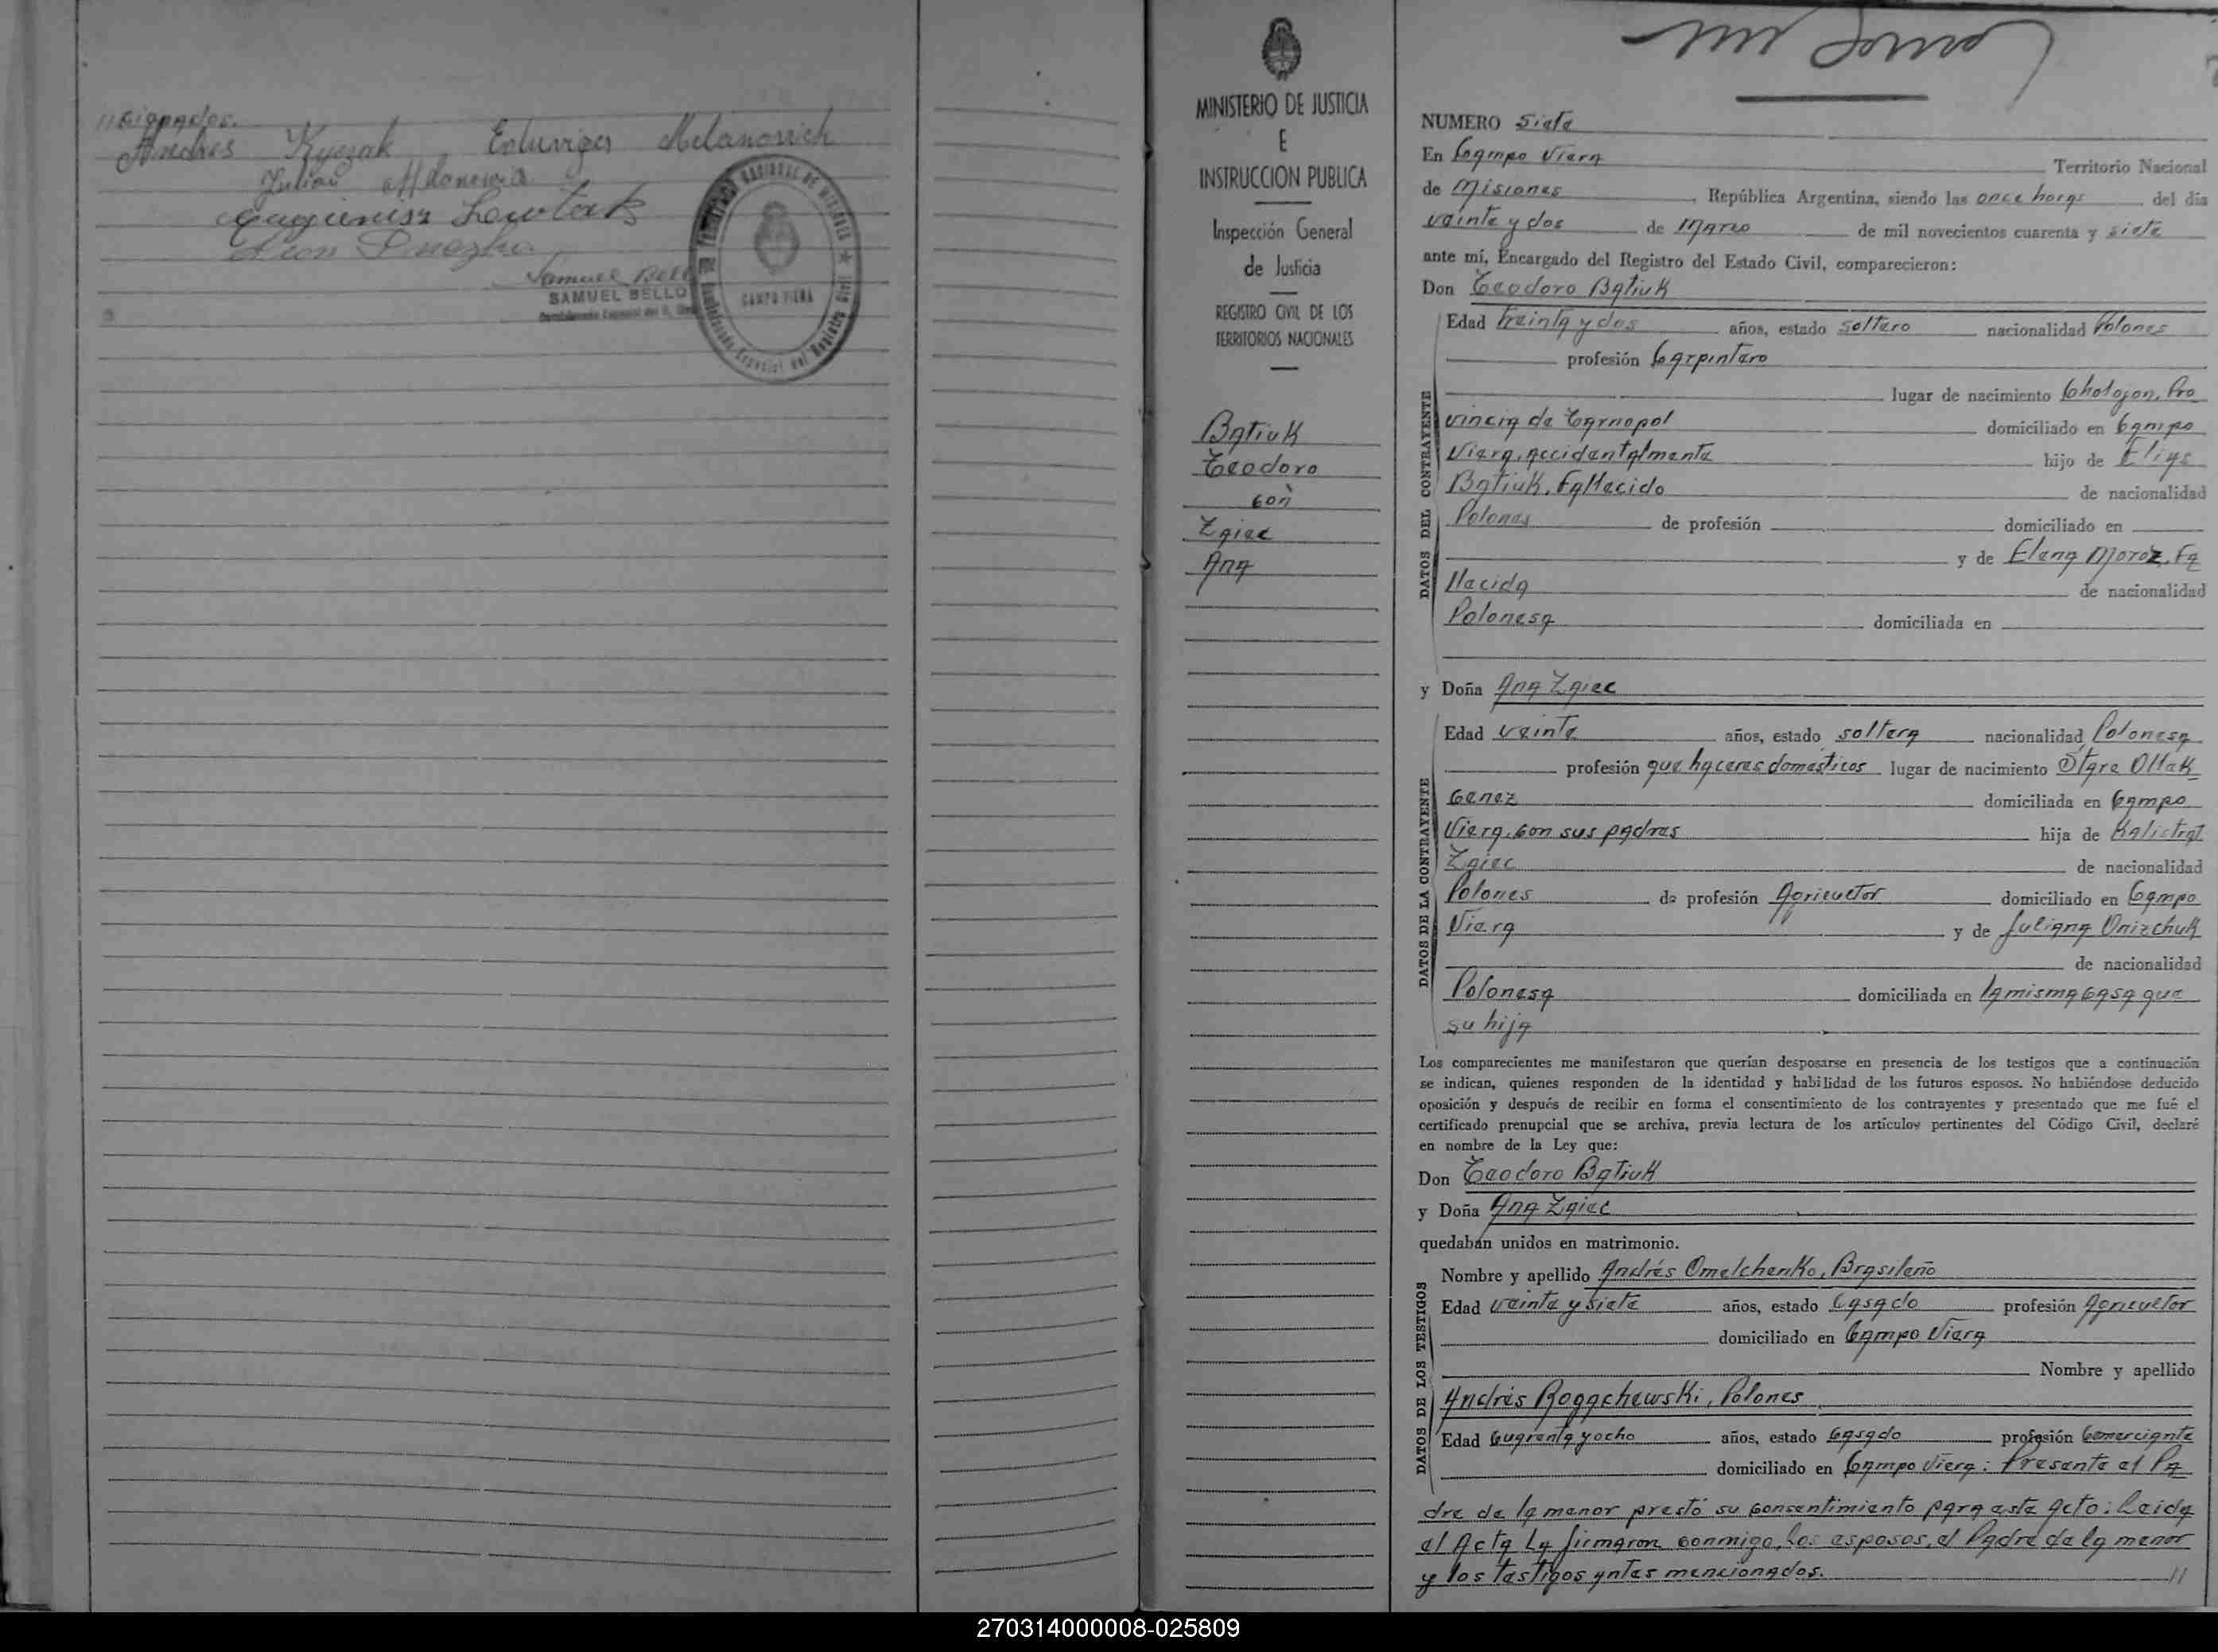 //signados.
Andres Kyczak Eduviges Melanovich
Julian
Leon
Samuel Bello
SAMUEL BELLO
CAMPO VIERA
MINISTERIO DE JUSTICIA
E
INSTRUCCION PUBLICA
Inspección General
de Justicia
REGISTRO CIVIL DE LOS
TERRITORIOS NACIONALES
Batiuk
Teodoro
con
Zgiec
Ana
NUMERO Siete
En Campo Viera Territorio Nacional
de Misiones, República Argentina, siendo las once horas del día
veinte y dos de Marzo de mil novecientos cuarenta y siete
ante mí, Encargado del Registro del Estado Civil, comparecieron:
Don Teodoro Batiuk
Edad treinta y dos años, estado soltero nacionalidad Polones
profesión Carpintero
lugar de nacimiento Chologon, Pro
vincia de Tarnopol domiciliado en Campo
Viera, accidentalmente hijo de Elias
Batiuk, Fallecido de nacionalidad
Polones de profesión domiciliado en
y de Elena Moroz, Fa
llecida de nacionalidad
Polonesa domiciliada en
y Doña Ana Zgiec
Edad veinte años, estado soltera nacionalidad Polonesa
profesión que haceres domesticos lugar de nacimiento Stare Olek
Cenez domiciliada en Campo
Viera, con sus padres hija de Kalistrat
Zgiec de nacionalidad
Polones de profesión Agricultor domiciliado en Campo
Viera y de Juliana Onizchuk
de nacionalidad
Polonesa domiciliada en la misma casa que
su hija
Los comparecientes me manifestaron que querían desposarse en presencia de los testigos que a continuación
se indican, quienes responden de la identidad y habilidad de los futuros esposos. No habiéndose deducido
oposición y después de recibir en forma el consentimiento de los contrayentes y presentado que me fué el
certificado prenupcial que se archiva, previa lectura de los artículos pertinentes del Código Civil, declaré
en nombre de la Ley que:
Don Teodoro Batiuk
y Doña Ana Zgiec
quedaban unidos en matrimonio.
Nombre y apellido Andrés Omelchenko, Brasileño
Edad veinte y siete años, estado Casado profesión Agricultor
domiciliado en Campo Viera
Nombre y apellido
Andrés Rogachewski, Polones
Edad Cuarenta y ocho años, estado Casado profesión Comerciante
domiciliado en Campo Viera: Presente el Pa
dre de la menor prestó su consentimiento para este acto: Leida
el Acta La firmaron conmigo, los esposos, el Padre de la menor
y los testigos antes mencionados. //
DATOS DEL CONTRAYENTE
DATOS DE LA CONTRAYENTE
DATOS DE LOS TESTIGOS
270314000008-025809